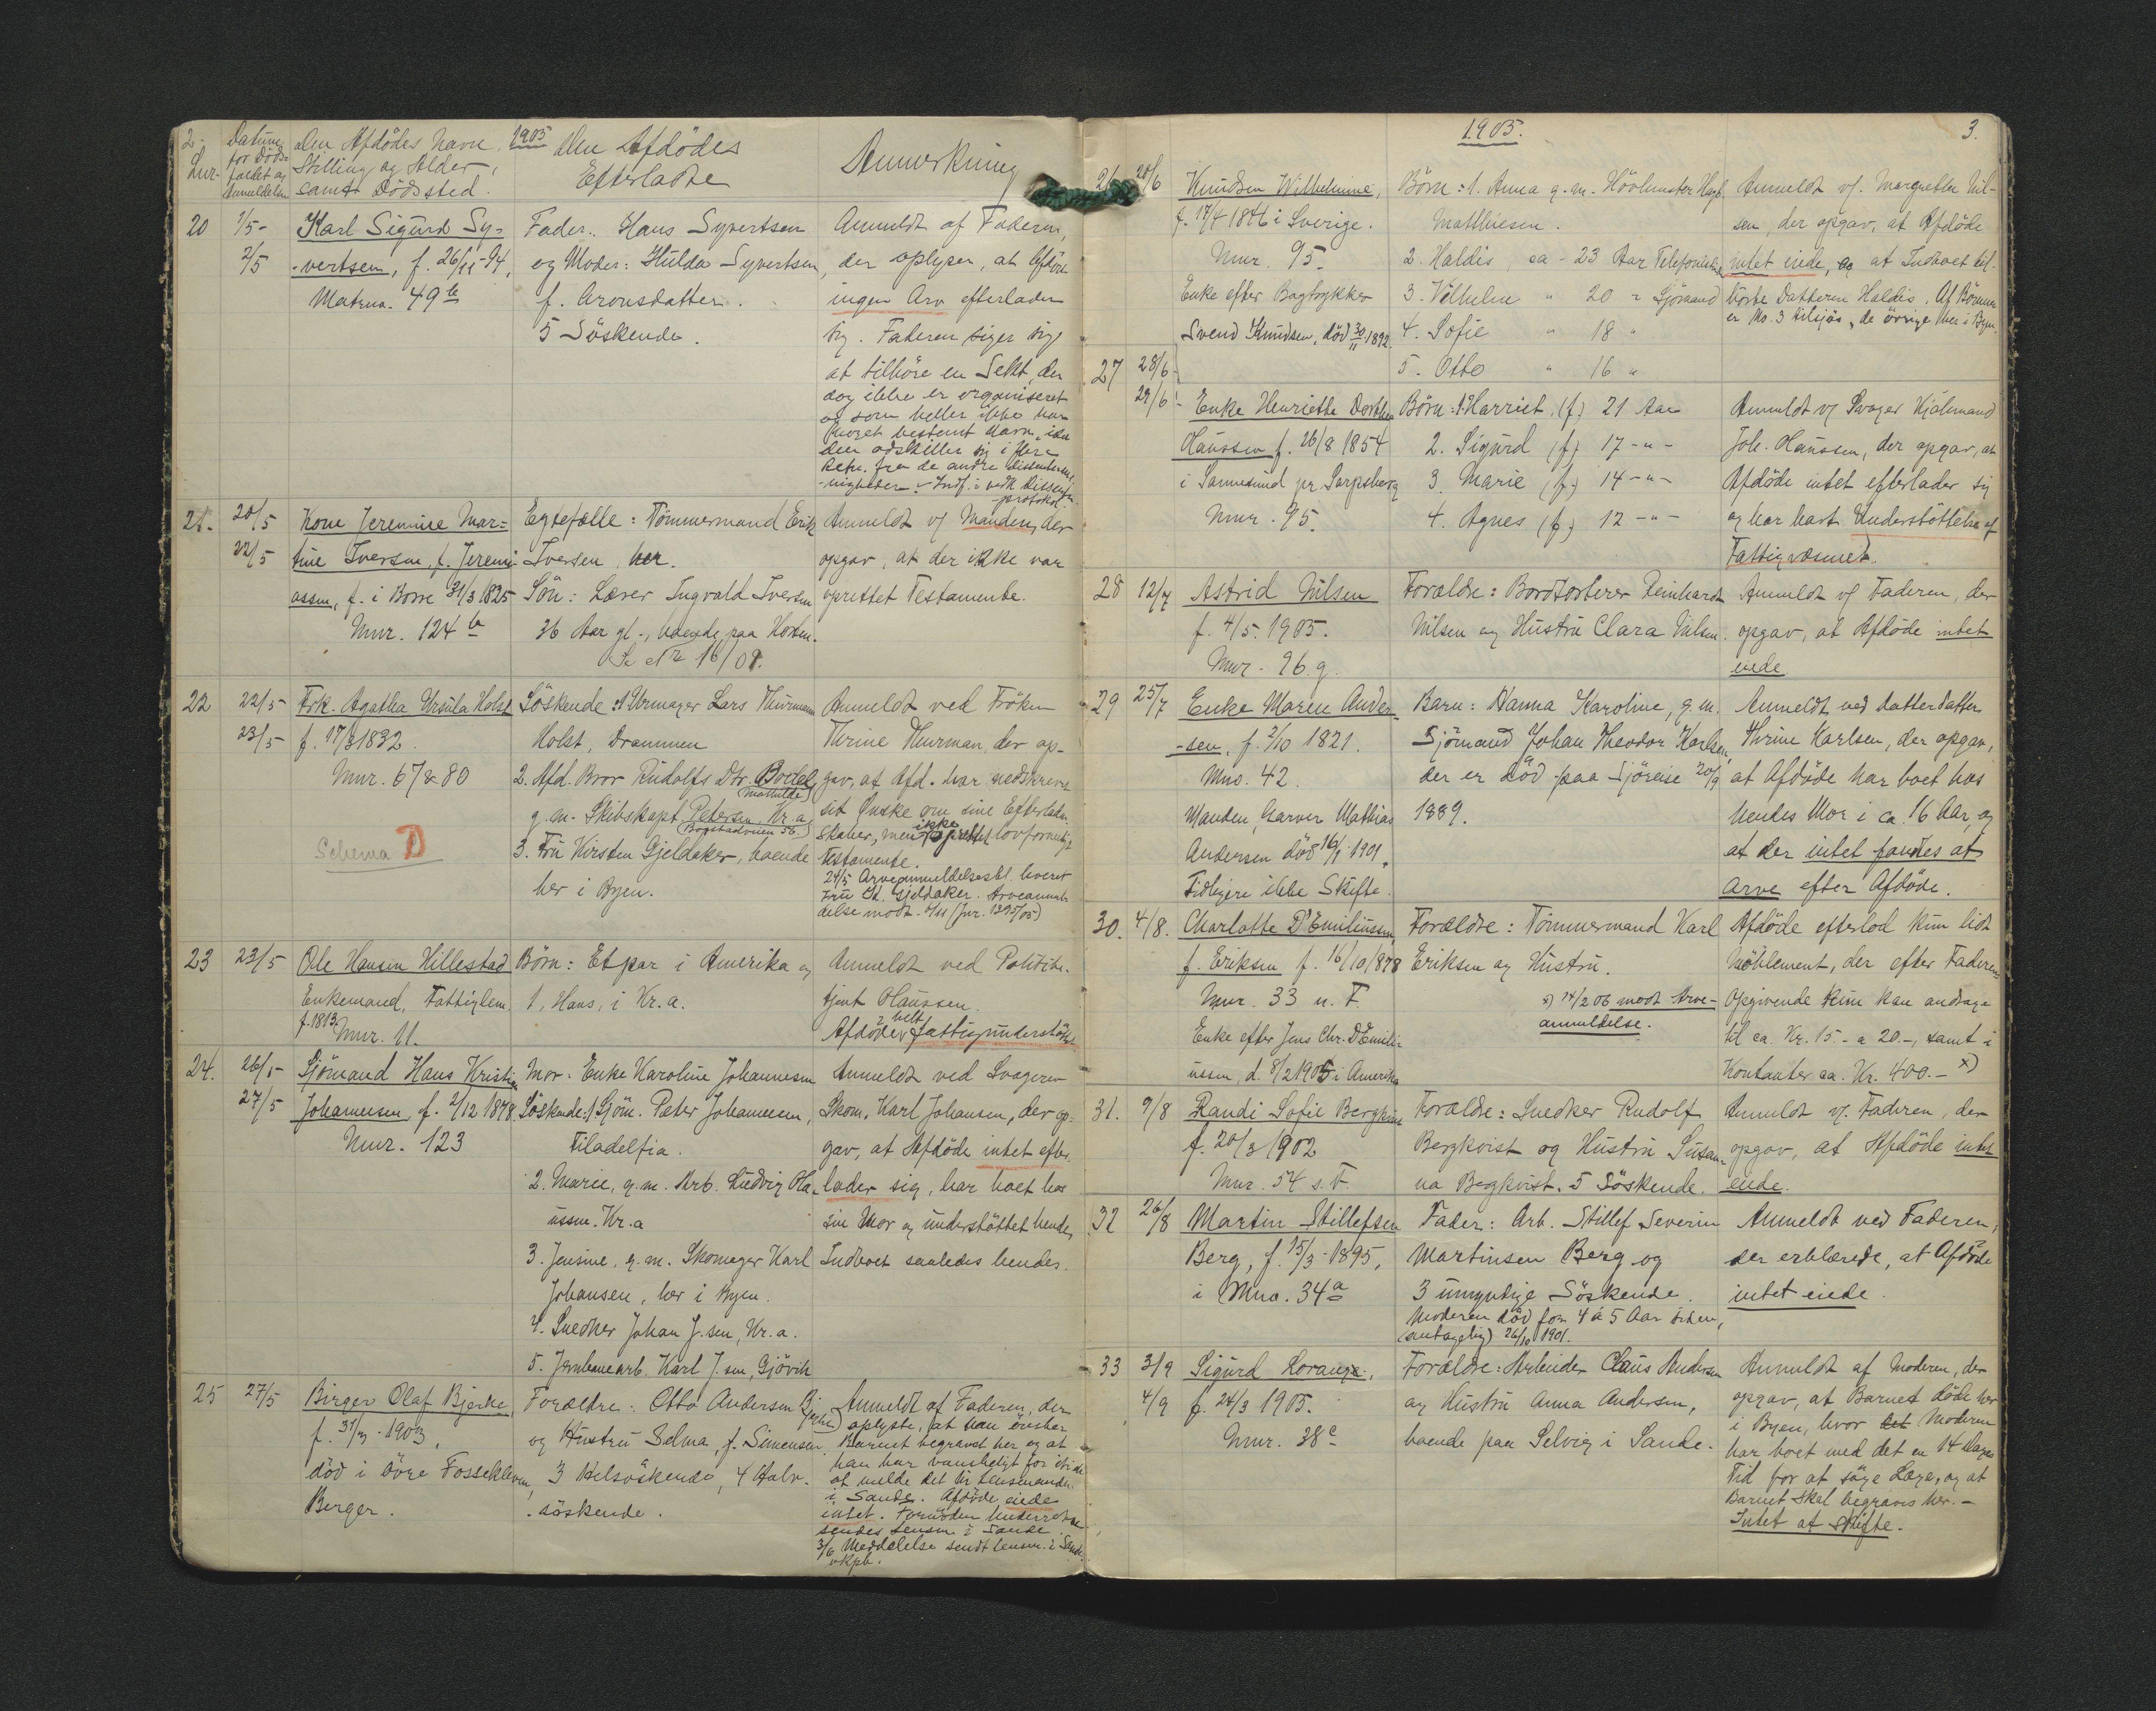 2.
Lnr.
Datum
for Døds-
faldet og
Anmeldelsen
Den Afdödes Navn,
Stilling og Alder,
samt Dödssted.
1905
Den Afdödes
Efterladte
Anmerkning
20
1/5 -
2/5
Karl Sigurd Sy-
-vertsen, f. 26/11-94,
Matrno. 49 b
Fader: Hans Syvertsen
og Moder: Hulda Syvertsen,
f. Aronsdatter.
5 Söskende.
Anmeldt af Faderen,
der oplyser, at Afdöde
ingen Arv efterlader
sig. Faderen siger sig
at tilhöre en Sekt, der
dog ikke er organiseret
og som heller ikke har
noget bestemt Navn,
den adskiller sig i flere
Retn. fra de andre Dissenterme-
-nigheder. - Indf. i vedk. Dissenter-
-protokol.
21.
20/5
22/5
Kone Jeremine Mar-
tine Iversen, f. Jeremi-
assen, f. i Borre 31/3 1825
Mnr. 124 b
Egtefælle: Tömmermand Erik
Iversen, her.
Sön: Lærer Ingvald Iversen
36 Aar gl., boende paa Horten.
Se No 16/01.
Anmeldt v/ Manden, der
opgav, at der ikke var
oprettet Testamente.
22
22/5 -
23/5
Frk. Agatha Ursula Holst
f. 17/3 1832.
Mnr. 67 & 80
Schema D
Söskende: 1 Urmager Lars Thurmann
Holst, Drammen
2. Afd. Bror Rudolfs Dtr. Bodel
(Mathilde)
g.m. Skibskapt. Petersen, Kr.a
(Bogstadveien 56.)
3. Fru Kirsten Gjeldaker, boende
her i Byen.
Anmeldt ved Fröken
Thrine Thurman, der op-
gav, at Afd. har nedskrevet
sit Önske om sine Efterladen-
skaber, men ikke oprettet lovformeligt
Testamente.
24/5 Arveanmeldelsesbl. leveret
Fru K. Gjeldaker. Arveanmel-
delse modt. 8/11 (Jnr. 1395/05)
23
23/5
Ole Hansen Hillestad
Enkemand, Fattiglem.
f. 1813. Mnr. 11.
Börn: Et par i Amerika og
1, Hans, i Kr.a.
Anmeldt ved Politibe-
tjent Olaussen.
Afdöde helt fattigunderstöttet
24.
26/5
27/5
Sjömand Hans Kristian
Johannesen, f. 2/12 1878.
Mnr. 123
Mor: Enke Karoline Johannesen
Söskende: 1 Sjöm. Peter Johannesen,
Filadelfia.
2. Marie, g.m. Arb. Ludvig Ola-
ussen. Kr.a
3. Jensine, g.m. Skomager Karl
Johansen, her i Byen.
4. Snedker Johan J.sen, Kr.a.
5. Jernbanearb. Karl J.sen, Gjövik
Anmeldt ved Svogeren
Skom. Karl Johansen, der op-
gav, at Afdöde intet efter-
lader sig, har boet hos
sin Mor og understöttet hende,
Indboet saaledes hendes.
25
27/5
Birger Olaf Bjerke,
f. 31/3 - 1903,
död i Övre Fossekleven,
Berger.
Forældre: Otto Andersen Bjerke
og Hustru Selma, f. Simensen.
3 Helsöskende, 4 Halv-
söskende.
Anmeldt af Faderen, der
oplyste, at han önsker
Barnet begravet her og at
han har vanskeligt for
at melde det til Lensmanden
i Sande. Afdöde eiede
intet. Fornöden Underretn.
sendes Lensm. i Sande.
3/6 Meddelelse sendt Lensm. i Sande.
1905.
3.
26
20/6
Knudsen Wilhelmine,
f. 17/4 1846 i Sverige.
Mnr. 95.
Enke efter Bogtrykker
Svend Knudsen, död 30/11 1892.
Börn: 1. Anna g.m. Hövlmester
Mathiesen.
2. Haldis, ca - 23 Aar Telefonistinde
3. Vilhelm " 20 " Sjömand
4. Sofie " 18 "
5. Otto " 16 "
Anmeldt v/ Margrethe Nil-
sen, der opgav, at Afdöde
intet eiede, og at Indboet til-
hörte Datteren Haldis. Af Börnene
er No. 3 tilsjös, de övrige her i Byen.
27
28/6 -
29/6
Enke Henriette Dorthea
Hanssen f. 26/8 1854
i Sannesund pr. Sarpsborg
Mnr. 95.
Börn: 1. Harriet, (f) 21 Aar
2. Sigurd (f) 17 - " -
3. Marie (f) 14 - " -
4. Agnes (f) 12 - " -
Anmeldt v/ Svoger Kjölmand
Joh. Hanssen, der opgav, at
Afdöde intet efterlader sig
og har havt Understöttelse af
Fattigvæsenet.
28
12/7
Astrid Nilsen
f. 4/5. 1905.
Mnr. 96 g.
Forældre: Bordsorterer Reinhardt
Nilsen og Hustru Clara Nilsen.
Anmeldt v/ Faderen, der
opgav, at Afdöde intet
eiede
29
25/7
Enke Maren Ander-
-sen, f. 2/10 1821.
Mno. 42.
Manden, Garver Mathias
Andersen död 16/1 1901.
Tidligere ikke Skifte.
Barn: Hanna Karoline, g.m.
Sjömand Johan Theodor Karlsen,
der er död paa Sjöreise 20/9
1889.
Anmeldt ved Datterdatter
Thrine Karlsen, der opgav,
at Afdöde har boet hos
hendes Mor i ca. 16 Aar, og
at der intet fandtes at
arve efter Afdöde.
30.
4/8.
Charlotte D'Emiliussen,
f. Eriksen f. 16/10/1878
Mnr. 33 n. F.
Enke efter Jens Chr. D'Emili-
ussen, d. 8/2 1905 i Amerika
Forældre: Tömmermand Karl
Eriksen og Hustru.
x) 14/2 06 modt. Arve-
anmeldelse.
Afdöde efterlod kun lidt
Möblement, der efter Faderens
Opgivende kun kan andrage
til ca. Kr. 15.- a 20.-, samt i
Kontanter ca. Kr. 400.- x)
31.
9/8
Randi Sofie Bergkvist
f. 20/3 1902
Mnr. 54 s.F.
Forældre: Snedker Rudolf
Bergkvist og Hustru Susan-
na Bergkvist. 5 Söskende.
Anmeldt v/. Faderen, der
opgav, at Afdöde intet
eiede.
32
26/8
Martin Stillefsen
Berg, f. 15/3 - 1895,
i Mno. 34 a
Fader: Arb. Stillef Severin
Martinsen Berg og
3 umyndige Söskende.
Moderen död for 4 á 5 Aar siden,
(antagelig) 26/10 1901.
Anmeldt ved Faderen,
der erklærede, at Afdöde
intet eiede.
33
3/9
4/9
Sigurd Lorang,
f. 24/3 1905.
Mnr. 38 c
Forældre: Arbeider Claus Andersen
og Hustru Anna Andersen,
boende paa Selvig i Sande.
Anmeldt af Moderen, der
opgav, at Barnet döde her
i Byen, hvor Moderen
har boet med det en 14 Dages
Tid for at söge Læge, og at
Barnet skal begraves her. -
Intet at skifte.